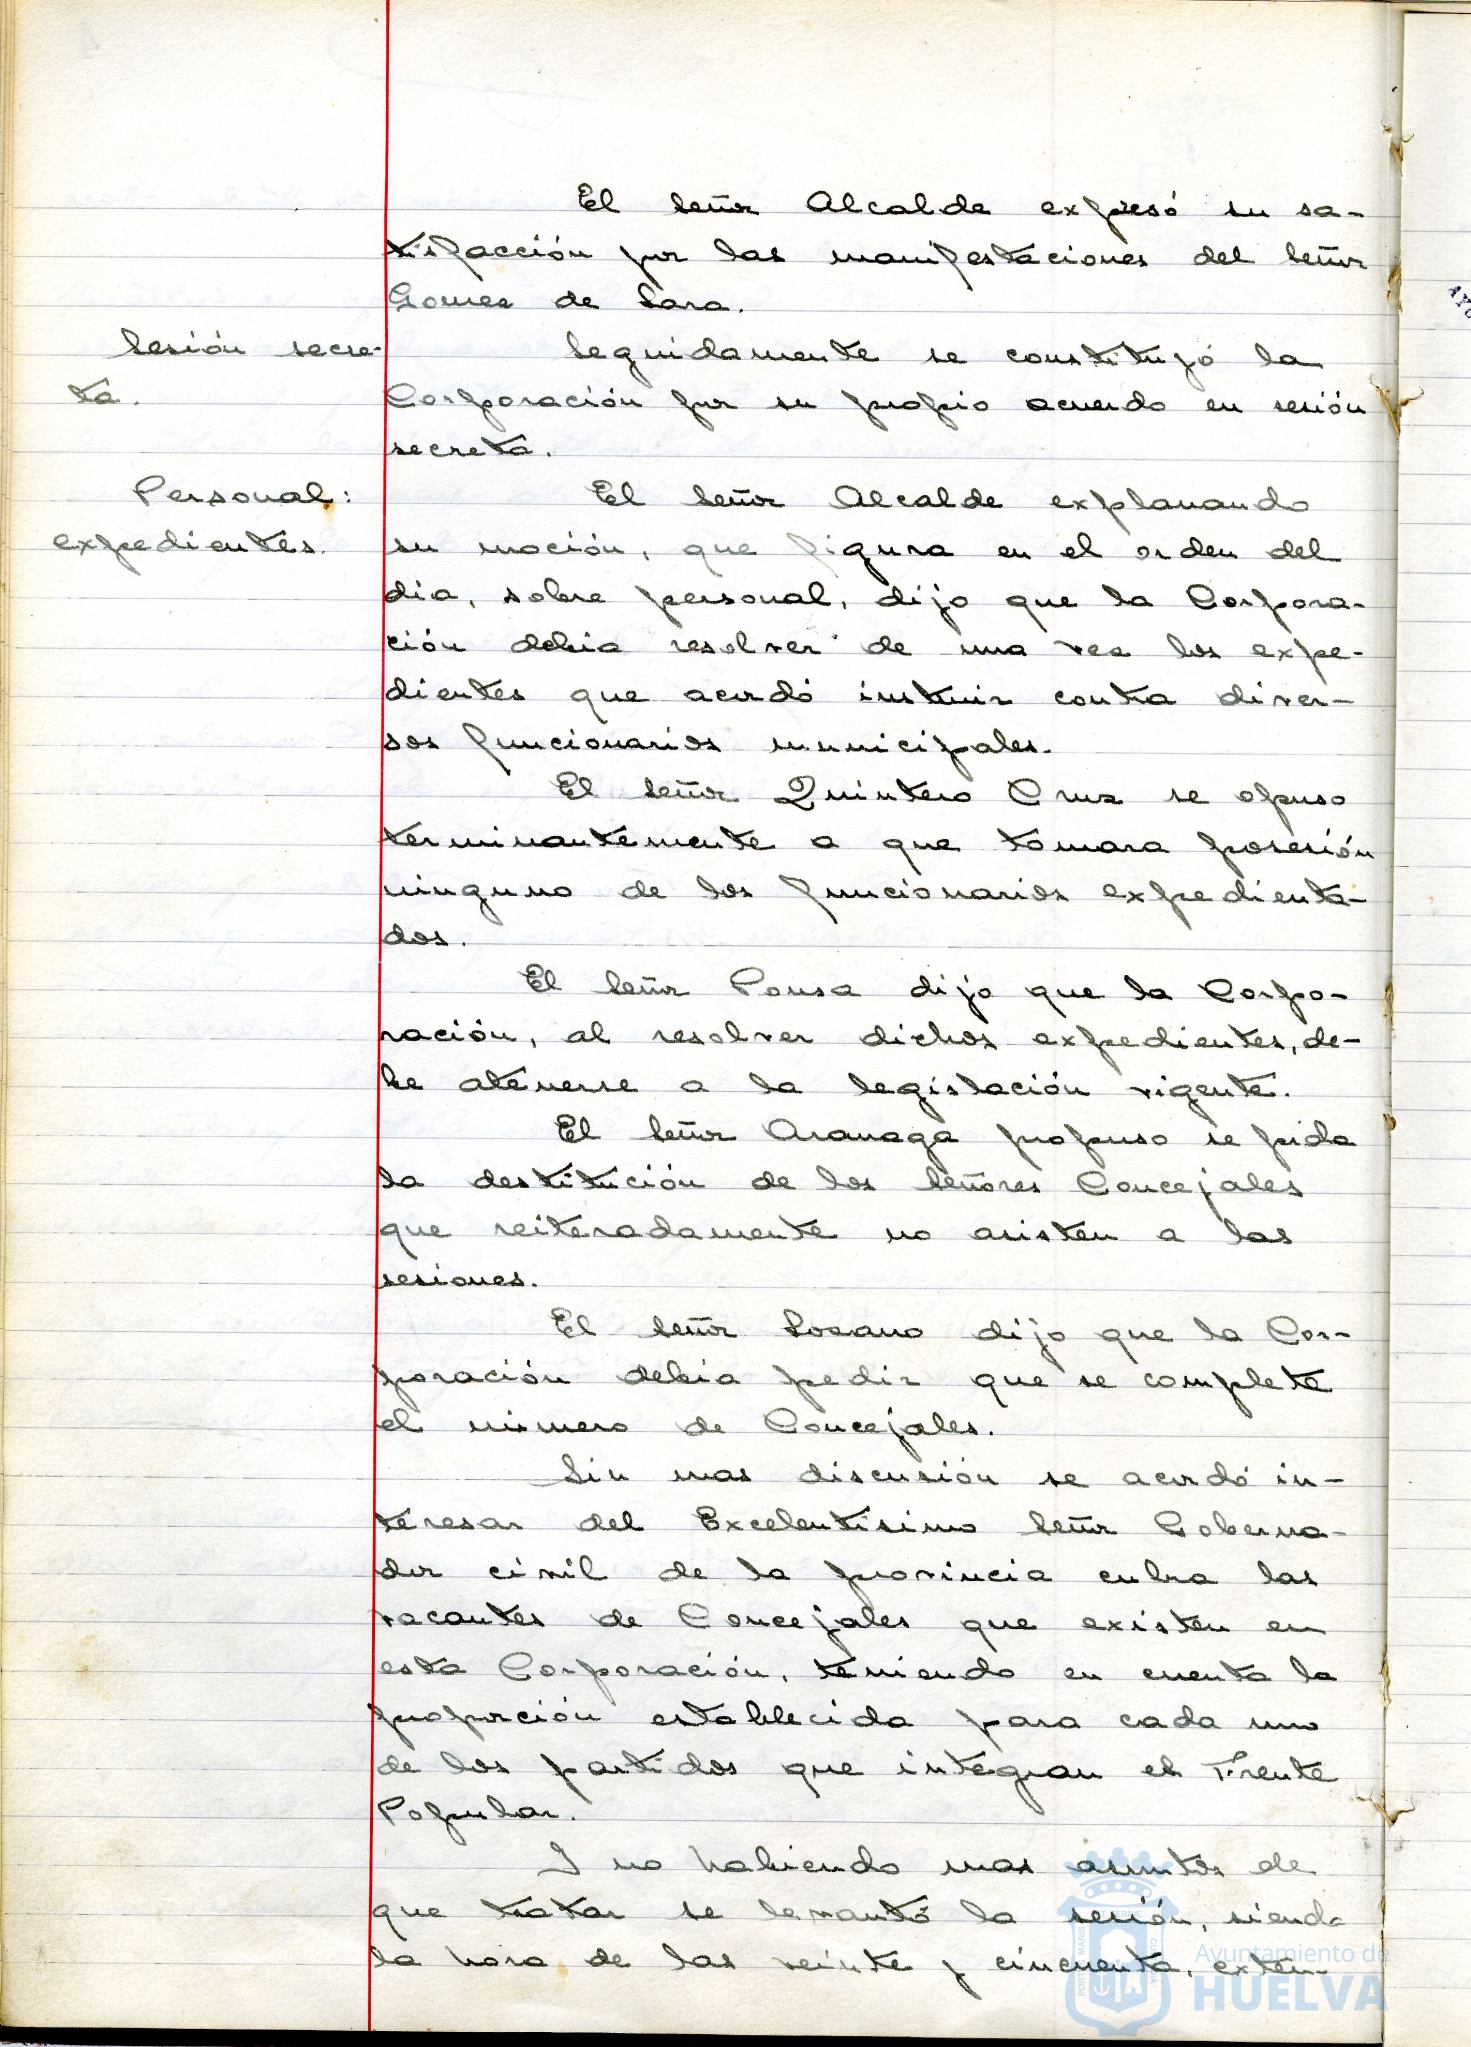 El Señor Alcalde expresó su sa-
tisfacción por las manifestaciones del Señor
Gomez de Lara.
Sesión secre-
ta.
Seguidamente se constituyó la
Corporación por su propio acuerdo en sesión
secreta.
Personal:
expedientes.
El Señor Alcalde explanando
su moción, que figura en el orden del
dia, sobre personal, dijo que la Corpora-
ción debia resolver de una vez los expe-
dientes que acordó instruir contra diver-
sos funcionarios municipales.
El Señor Quintero Cruz se opuso
terminantemente a que tomara posesión
ninguno de los funcionarios expedienta-
dos.
El Señor Ponsa dijo que la Corpo-
ración, al resolver dichos expedientes, de-
be atenerse a la legislación vigente.
El Señor Aranaga propuso se pida
la destitución de los Señores Concejales
que reiteradamente no asisten a las
sesiones.
El Señor Lozano dijo que la Cor-
poración debia pedir que se complete
el número de Concejales.
Sin mas discusión se acordó in-
teresar del Excelentisimo Señor Goberna-
dor civil de la provincia cubra las
vacantes de Concejales que existen en
esta Corporación, teniendo en cuenta la
proporción establecida para cada uno
de los partidos que integran el Frente
Popular.
Y no habiendo mas asuntos de
que tratar se levantó la sesión, siendo
la hora de las veinte y cincuenta, exten-
Ayuntamiento de
HUELVA